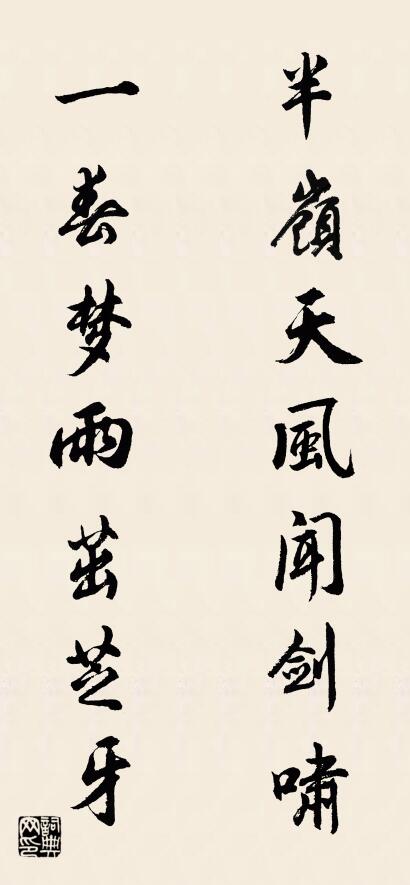 半嶺天風聞剑嘯
一春梦雨茁芝牙
詞典网印